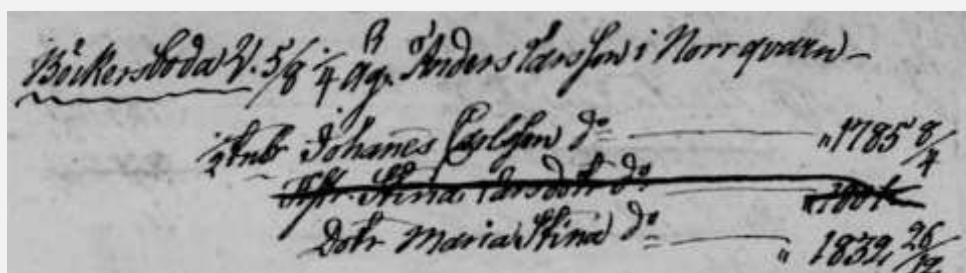 Böckersboda U. 5/8 1/4 Äg. Anders Larsson i Norrqvarn –
1/2 bnb Johanes Carlsson do " 1785 8/4
Hstr. Stina Larsdotr do
Dotr Maria Stina do " 1832 26/12